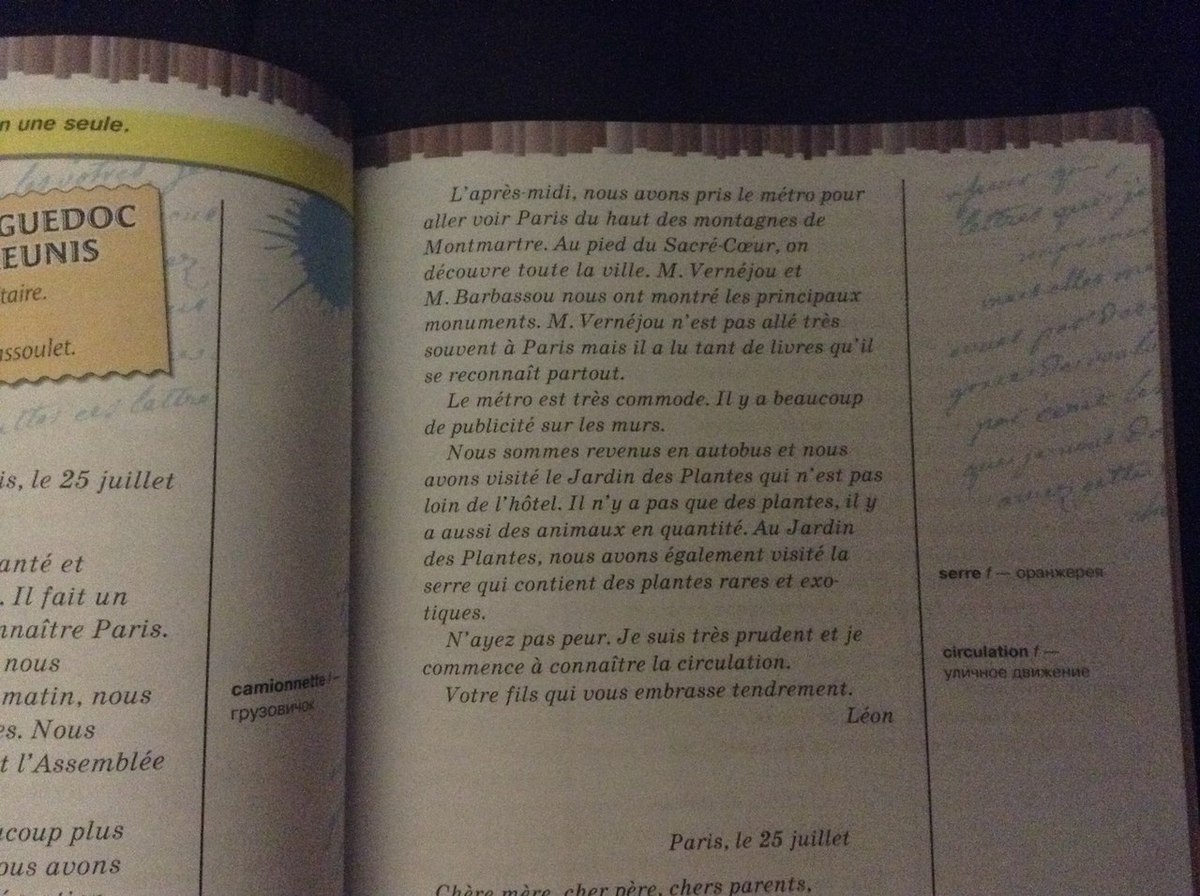 n une seule.
GUEDOC
EUNIS
taire.
ssoulet.
is, le 25 juillet
anté et
. Il fait un
nnaître Paris.
nous
matin, nous
es. Nous
t l'Assemblée
ucoup plus
ous avons
camionnette f –
грузовичок
L'après-midi, nous avons pris le métro pour
aller voir Paris du haut des montagnes de
Montmartre. Au pied du Sacré-Cœur, on
découvre toute la ville. M. Vernéjou et
M. Barbassou nous ont montré les principaux
monuments. M. Vernéjou n'est pas allé très
souvent à Paris mais il a lu tant de livres qu'il
se reconnaît partout.
Le métro est très commode. Il y a beaucoup
de publicité sur les murs.
Nous sommes revenus en autobus et nous
avons visité le Jardin des Plantes qui n'est pas
loin de l'hôtel. Il n'y a pas que des plantes, il y
a aussi des animaux en quantité. Au Jardin
des Plantes, nous avons également visité la
serre qui contient des plantes rares et exo-
tiques.
N'ayez pas peur. Je suis très prudent et je
commence à connaître la circulation.
Votre fils qui vous embrasse tendrement.
Léon
Paris, le 25 juillet
Chère mère, cher père, chers parents,
serre f — оранжерея
circulation f —
уличное движение